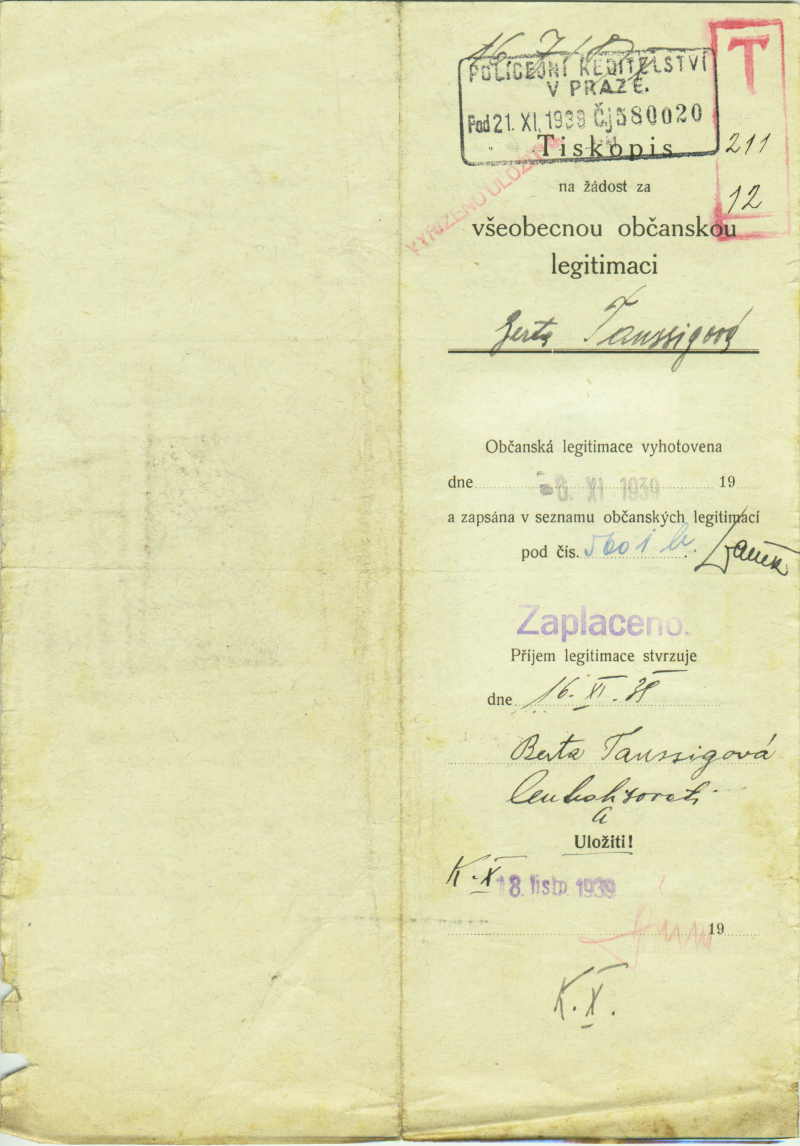 POLICEJNÍ ŘEDITELSTVÍ
V PRAZE.
Pod 21. XI. 1939 Čj 580020
T
Tiskopis
211
12
na žádost za
VYŘÍZENO ULOŽENO
všeobecnou občanskou
legitimaci
Berta Taussigová
Občanská legitimace vyhotovena
dne -8. XI 1939 19
a zapsána v seznamu občanských legitimací
pod čís. 5601 b
Zaplaceno.
Příjem legitimace stvrzuje
dne 16. XI. 39
Berta Taussigová
Centralisovati
a
Uložiti!
K. X 18. listp. 1939
19
K. X.